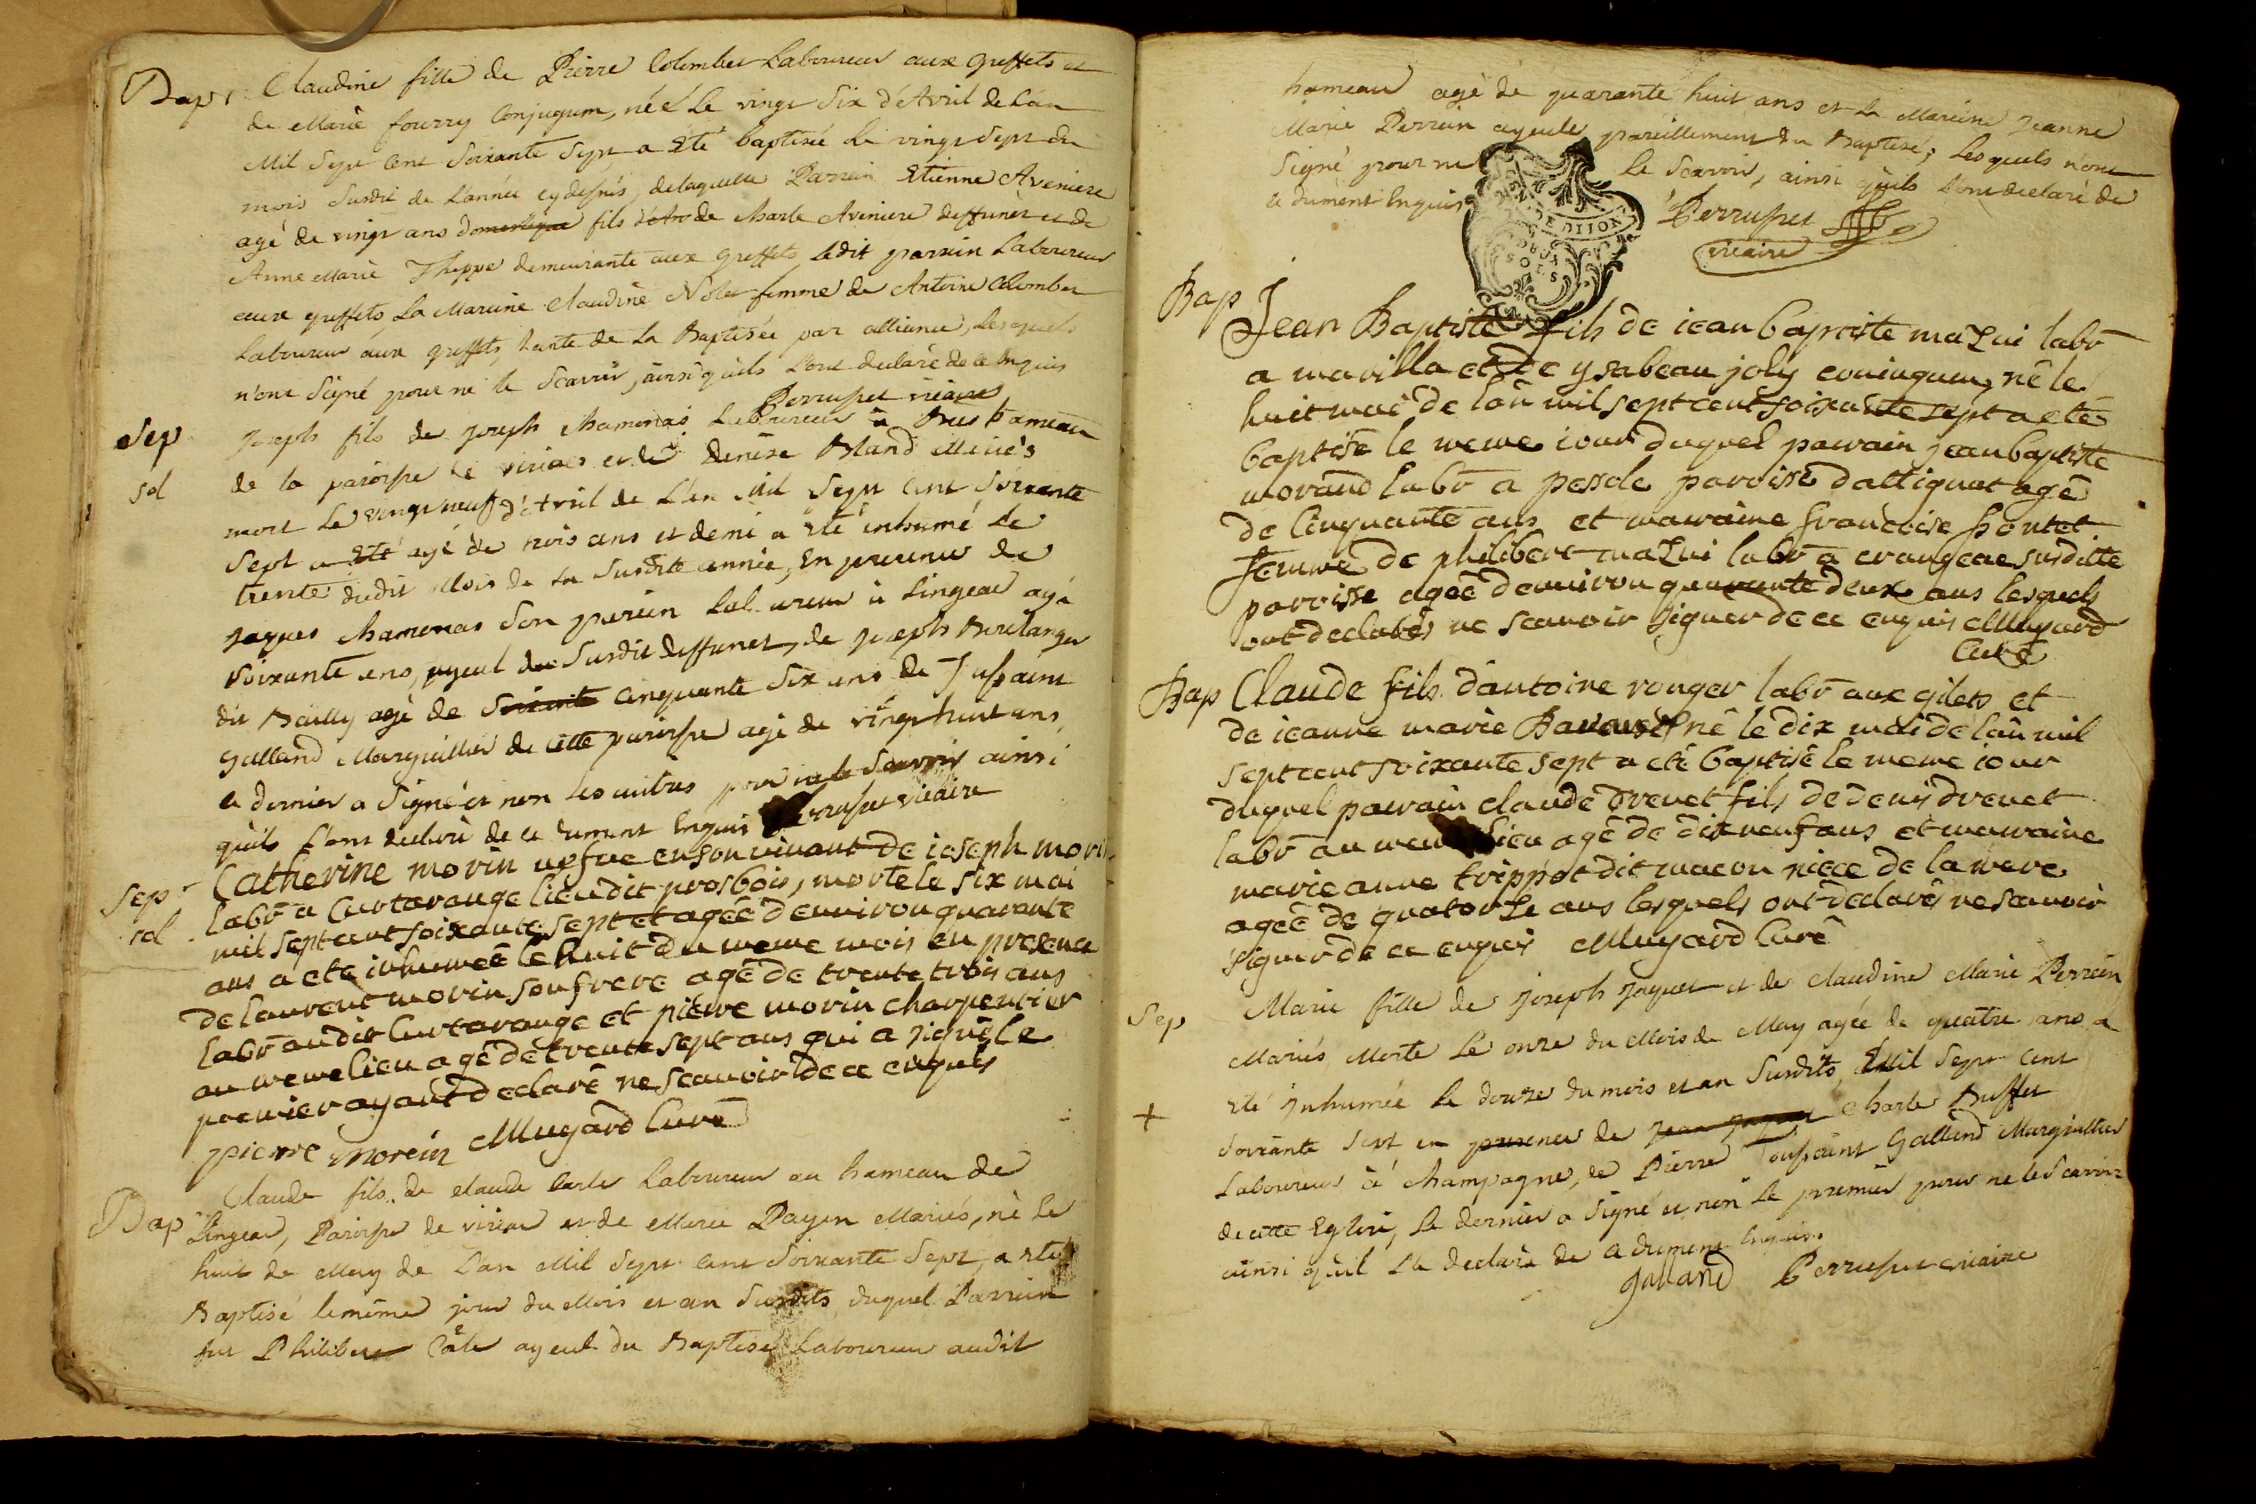 Bap. Claudine fille de Pierre Colomber Laboureur aux Greffets et
de Marie fourry Conjugum, née Le vingt Six d'Avril de L'an
Mil Sept Cent Soixante Sept a Eté baptisée Le vingt Sept du
mois Susdit de L'année cy dessus, de laquelle Parrein Etienne Aveniere
agé de vingt ans domestique fils de Charle Aveniere deffunct et de
Anne Marie demeurante aux Greffets, Ledit parrein Laboureur
aux greffets, La Mareine Claudine femme de Antoine Colomber
Laboureur aux greffets, tante de La Baptisée par alliance, Lesquels
n'ont Signé pour ne le Scavoir, ainsi qu'ils L'ont declaré de ce Enquis
Perrusset vicaire
Sep Joseph fils de Joseph Chamonas Laboureur à hameau
sol de la paroisse de et de Denise Bland Mariés
mort Le vingt neuf d'Avril de L'an Mil Sept Cent Soixante
Sept a Eté agé de trois ans et demi a Eté inhumé Le
trente dudit Mois de La Susditte année, En presence de
Jaques Chamonas Son parein Laboureur à Lingeat agé
Soixante ans, ayeul du Susdit deffunct, de Joseph Boulanger
dit Bailly agé de Soixante Cinquante Six ans de Tousaint
Galland Marguillier de cette paroisse agé de vingt huit ans
ce dernier a Signé et non Les autres pour ne le Scavoir ainsi
qu'ils L'ont declaré de ce dument Enquis Perrusset vicaire
Sepr Catherine morin vefve en son vivant de ieseph morin
sol labr a Curtarange lieudit prosbois, morte le six mai
mil sept cent soixante sept et agée d'environ quarante
ans a eté inhumée le huit du meme mois en presence
de laurent morin son frere agé de trente trois ans
labr audit Curtarange et pierre morin charpentier
au meme lieu agé de trente sept ans qui a signé le
premier ayant declaré ne scavoir de ce enquis
pierre morein Mugard Curé
Bap Claude fils de claude Carle Laboureur au hameau de
Lingeat, Paroisse de et de Marie Payen Mariés, né Le
huit de May de L'an Mil Sept Cent Soixante Sept, a Eté
Baptisé le même jour du Mois et an Susdits, duquel Parrein
fut Philibert Carle ayeul du Baptisé Laboureur audit
hameau agé de quarante huit ans et La Mareine Jeanne
Marie Perrein ayeule pareillement du Baptisé; Lesquels n'ont
Signé pour ne Le Scavoir, ainsi qu'ils L'ont declaré de
ce dument Enquis Perrusset
vicaire
GEN. DE DIJON
SOLS
Bap Jean Baptiste fils de iean baptiste mazui labr
a mavilla et de ysabeau joly coniugum, né le
huit mai de l'an mil sept cent soixante sept a eté
baptisé le meme iour duquel parrain jean baptiste
morand labr a paroisse dattignat agé
de Cinquante ans et marraine francoise pontet
femme de philibert mazui labr a crangeac susditte
paroisse agée d'environ quarante deux ans lesquels
ont declarés ne scavoir signer de ce enquis Mugard
Curé
Bap Claude fils d'antoine rouger labr aux gilets et
de ieanne marie né le dix mai de l'an mil
sept cent soixante sept a eté baptisé le meme iour
duquel parrain claude drevet fils de denis drevet
labr au meme lieu agé de dix neuf ans et marraine
marie anne trippot dit macon niece de la mere
agée de quatorze ans lesquels ont declarés ne scavoir
signer de ce enquis Mugard Curé
Sep Marie fille de Joseph Joguet et de Claudine Marie Perrein
Mariés, Morte Le onze du Mois de May agée de quatre ans a
+ Eté Inhumée Le douze du mois et an Susdits, Mil Sept Cent
Soixante Sept en presence de Charle Buffet
Laboureur à Champagne, de Pierre Tousaint Galland Marguillier
de cette Eglise, Le dernier a Signé et non Le premier pour ne le Scavoir
ainsi qu'il L'a declaré de ce dument Enquis.
Galland Perrusset vicaire